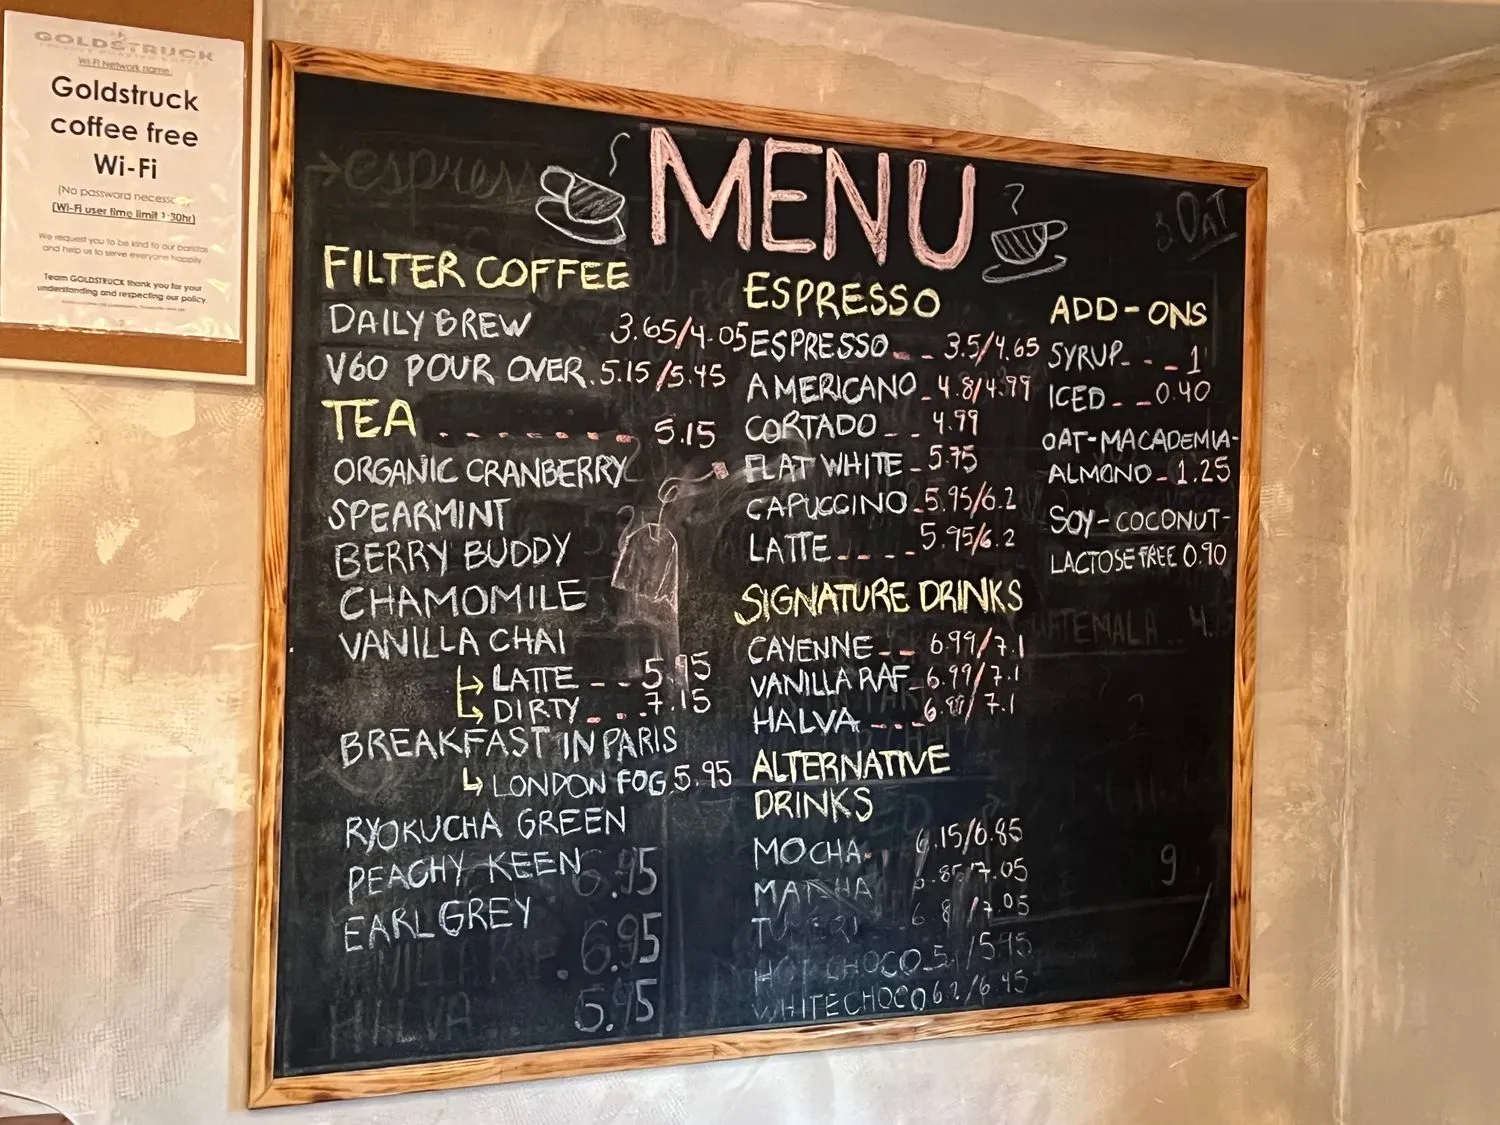 GOLDSTRUCK
Wi-Fi Network name:
Goldstruck
coffee free
Wi-Fi
(No password necessary)
(Wi-Fi user time limit 1:30hr)
We request you to be kind to our baristas
and help us to serve everyone happily
Team GOLDSTRUCK thank you for your
understanding and respecting our policy.
→espress
MENU
OAT
FILTER COFFEE
DAILY BREW 3.65/4.05
V60 POUR OVER. 5.15/5.45
TEA ........ 5.15
ORGANIC CRANBERRY
SPEARMINT
BERRY BUDDY
CHAMOMILE
VANILLA CHAI
→ LATTE -- 5.95
→ DIRTY ... 7.15
BREAKFAST IN PARIS
↳ LONDON FOG 5.95
RYOKUCHA GREEN
PEACHY KEEN 6.95
EARL GREY
6.95
HALVA 5.95
ESPRESSO
ESPRESSO -- 3.5/4.65
AMERICANO - 4.8/4.99
CORTADO -- 4.99
FLAT WHITE - 5.75
CAPUCCINO - 5.95/6.2
LATTE ---- 5.95/6.2
SIGNATURE DRINKS
CAYENNE -- 6.99/7.1
VANILLA RAF - 6.99/7.1
HALVA --- 6.99/7.1
ALTERNATIVE
DRINKS
MOCHA 6.15/6.85
MATCHA .85/7.05
6.8 /7.05
HOT CHOCO 5. /5.95
WHITE CHOCO 6.2/6.45
ADD-ONS
SYRUP - - - 1
ICED -- 0.40
OAT-MACADEMIA-
ALMOND - 1.25
SOY-COCONUT-
LACTOSE FREE 0.90
9